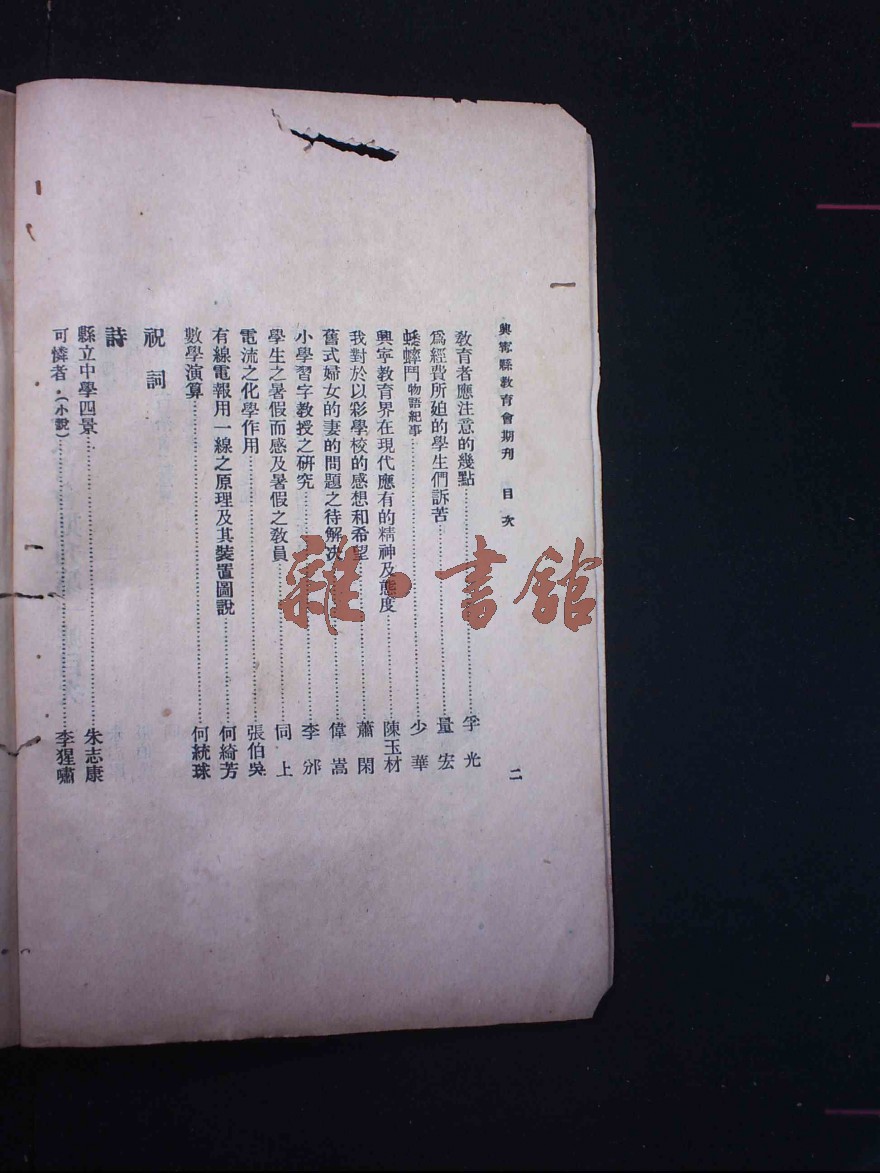 興寧縣教育會期刊 目次 二
教育者應注意的幾點 孚光
爲經費所廹的學生們訴苦 量宏
蟋蟀鬥 物語紀事 少華
興寧教育界在現代應有的精神及態度 陳玉材
我對於以彩學校的感想和希望 蕭閑
舊式婦女的妻的問題之待解决 偉嵩
小學習字教授之研究 李邠
學生之暑假而感及暑假之教員 同上
電流之化學作用 張伯吳
有線電報用一線之原理及其裝置圖說 何綺芳
數學演算 何統球
祝詞
詩
縣立中學四景 朱志康
可憐者(小說) 李猩嘯
雜·書館